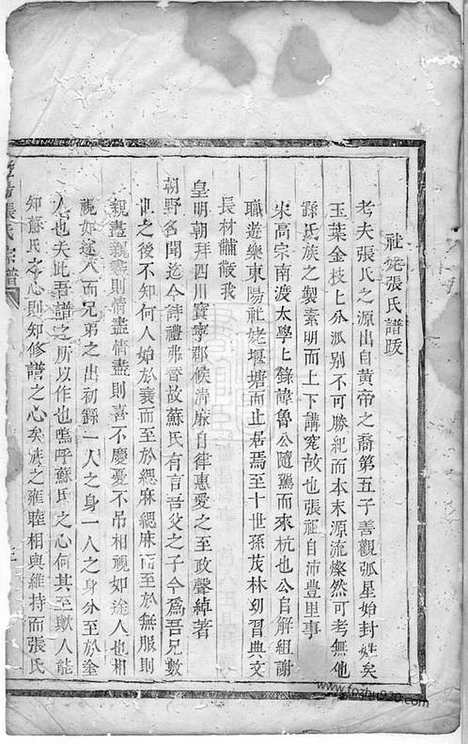 社姥張氏譜跋
考夫張氏之源出自黃帝之裔第五子善觀弧星始封姓矣
玉葉金枝上分派别不可勝紀而本末源流燦然可考無他
繇氏族之製素明而上下講究故也張祖自沛豊里事
宋高宗南渡太學上錄韓魯公隨駕而來杭也公自解組謝
職遊樂東陽社姥堰塘而止居焉至十世孫茂林幼習典文
長材黼黻我
皇明朝拜四川寳寧郡候清廉自律惠愛之至政聲綽著
朝野名聞迄今詩禮弗替故蘇氏有言吾父之子今爲吾兄數
世之後不知何人始於衰而至於緦麻緦麻而至於無服則
親盡親盡則情盡情盡則喜不慶憂不吊相視如途人也相
視如途人而兄弟之出初錄一人之身一人之身分至於塗
人也夫此吾譜之所以作也嗚呼蘇氏之心何其至歟人能
知蘇氏之心則知修譜之心矣族之雍睦相與維持而張氏
張氏宗譜
www.foshu920.com